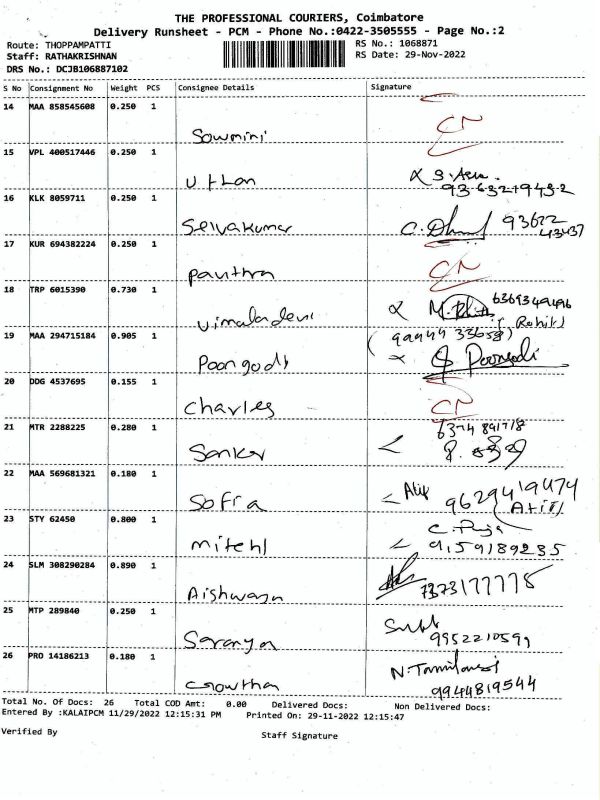 THE PROFESSIONAL COURIERS, Coimbatore
Delivery Runsheet - PCM - Phone No.:0422-3505555 - Page No.:2
Route: THOPPAMPATTI RS No.: 1068871
Staff: RATHAKRISHNAN RS Date: 29-Nov-2022
DRS No.: DCJB106887102
S No Consignment No Weight PCS Consignee Details Signature
14 MAA 858545608 0.250 1
Sowmini CN
15 VPL 400517446 0.250 1
Uthan 9363219432
16 KLK 8059711 0.250 1
Selvakumar 93622
43437
17 KUR 694382224 0.250 1
Pavithra CN
18 TRP 6015390 0.730 1
Vimaladevi
19 MAA 294715184 0.905 1
Poongodi Poongodi
20 DDG 4537695 0.155 1
Charles CN
21 MTR 2288225 0.280 1
Sankar
22 MAA 569681321 0.180 1
Sofia 9629419474
23 STY 62450 0.800 1
Mitehl 9159189235
24 SLM 308290284 0.890 1
Aishwarya
25 MTP 289840 0.250 1
Saranya
26 PRO 14186213 0.180 1
Gowtham
9944819544
Total No. Of Docs: 26 Total COD Amt: 0.00 Delivered Docs: Non Delivered Docs:
Entered By :KALAIPCM 11/29/2022 12:15:31 PM Printed On: 29-11-2022 12:15:47
Verified By Staff Signature